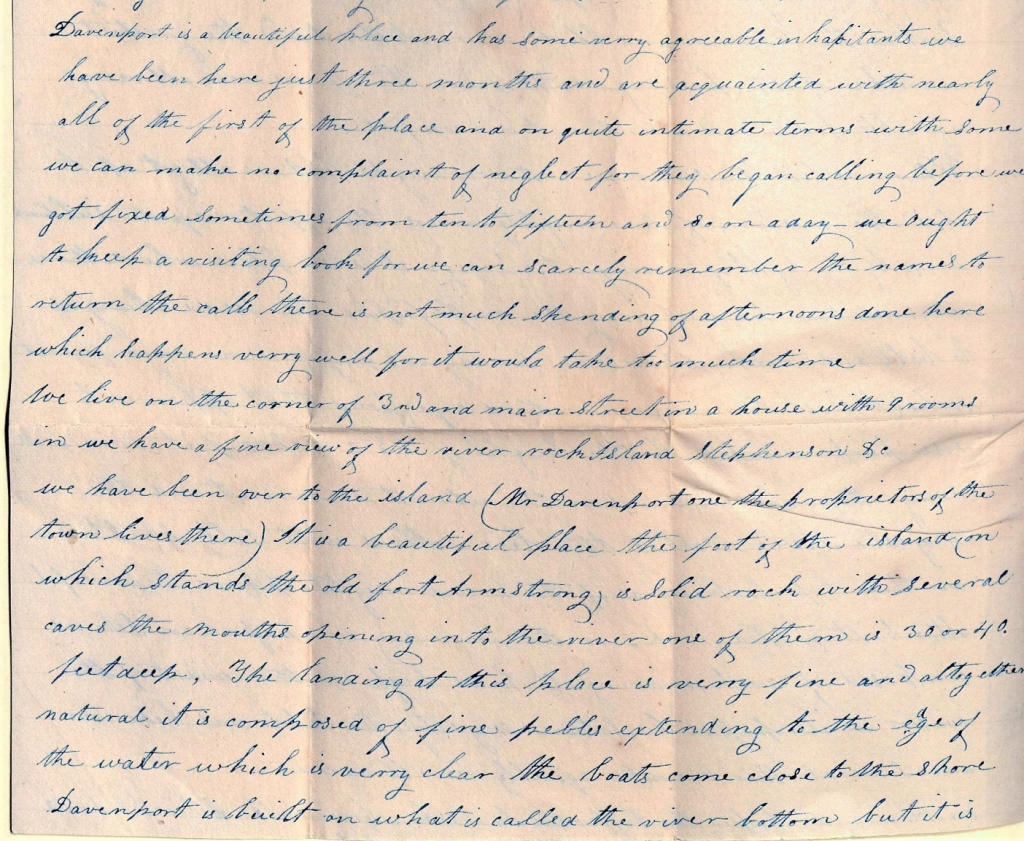 Davenport is a beautiful place and has some verry agreeable inhabitants we
have been here just three months and are acquainted with nearly
all of the first of the place and on quite intimate terms with some
we can make no complaint of neglect for they began calling before we
got fixed sometimes from ten to fifteen and so on a day - we ought
to keep a visiting book for we can scarcely remember the names to
return the calls there is not much spending of afternoons done here
which happens verry well for it would take too much time
We live on the corner of 3rd and main street in a house with 9 rooms
in we have a fine view of the river rock Island Stephenson &c
we have been over to the island (Mr Davenport one the proprietors of the
town lives there) It is a beautiful place the foot of the island (on
which stands the old fort Armstrong) is solid rock with several
caves the mouths opening into the river one of them is 30 or 40.
feet deep, The landing at this place is verry fine and altogether
natural it is composed of fine pebles extending to the edge of
the water which is verry clear the boats come close to the shore
Davenport is built on what is called the river bottom but it is